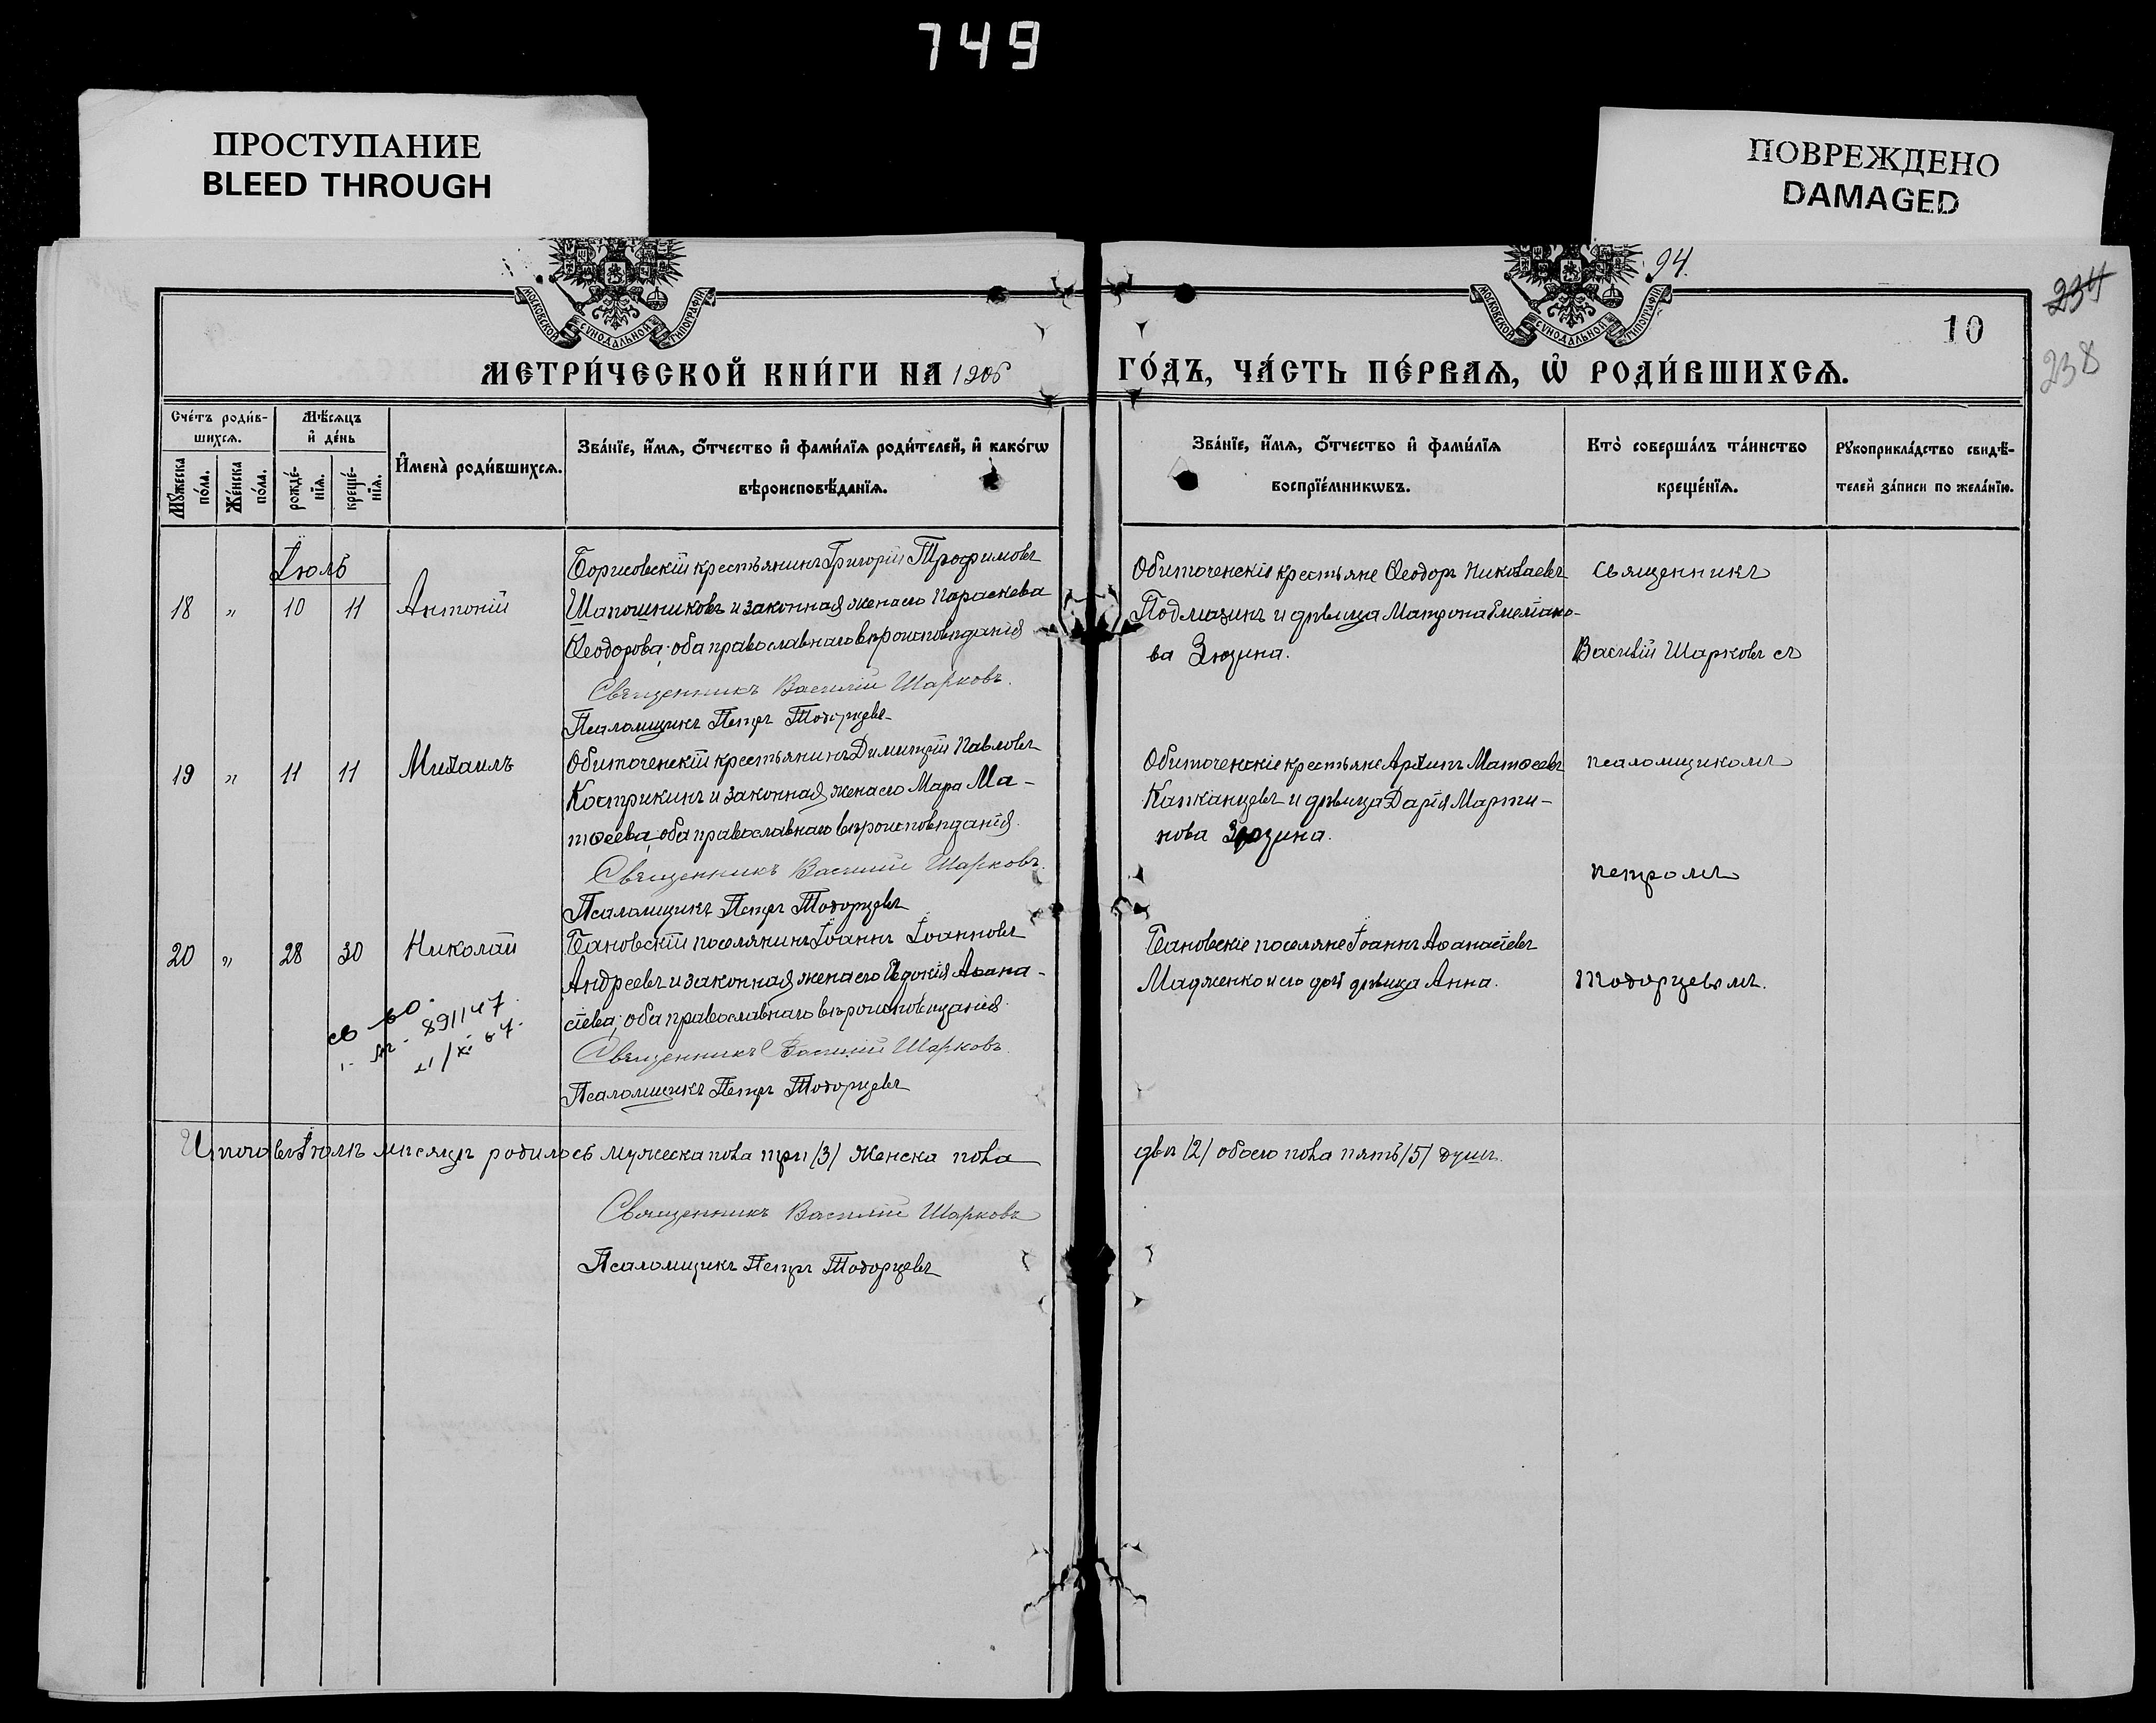 749
ПРОСТУПАНИЕ
BLEED THROUGH
ПОВРЕЖДЕНО
DAMAGED
МОСКОВСКОЙ СѴНОДАЛЬНОЙ ТИПОГРАФІИ
МОСКОВСКОЙ СѴНОДАЛЬНОЙ ТИПОГРАФІИ
94.
234
10
238
МЕТРИ́ЧЕСКОЙ КНИ́ГИ НА 1906
ГО́ДЪ, ЧА́СТЬ ПЕ́РВАѦ, Ѡ҆ РОДИ́ВШИХСѦ.
Сче́тъ роди́в-
шихсѧ.
Мѣ́сѧцъ
и҆ де́нь
Мꙋ́жеска
по́ла.
Же́нска
по́ла.
рожде́-
нїѧ.
креще́-
нїѧ.
И҆мена̀ роди́вшихсѧ.
Зва́нїе, и҆́мѧ, ѻ҆́тчество и҆ фами́лїѧ роди́телей, и҆ како́гѡ
вѣроисповѣ́данїѧ.
Зва́нїе, и҆́мѧ, ѻ҆́тчество и҆ фами́лїѧ
воспрїе́мникѡвъ.
Кто̀ соверша́лъ та́инство
креще́нїѧ.
Рꙋкоприкла́дство свидѣ́-
телей за́писи по жела́нїю.
Іюль
18 " 10 11 Антоній
Борисовскій крестьянинъ Григорій Трофимовъ
Шапошниковъ и законная жена его Параскева
Ѳеодорова; оба православнаго вѣроисповѣданія
Священникъ Василій Шарковъ.
Псаломщикъ Петръ Тодорцевъ
Обиточенскіе крестьяне Ѳеодоръ Николаевъ
Подмазинъ и дѣвица Матрона Емеліано-
ва Зюзина.
Священникъ
Василій Шарковъ съ
19 " 11 11 Михаилъ
Обиточенскій крестьянинъ Димитрій Павловъ
Кострикинъ и законная жена его Мара Ма-
тѳеева, оба православнаго вѣроисповѣданія.
Священникъ Василій Шарковъ.
Псаломщикъ Петръ Тодорцевъ
Обиточенскіе крестьяне Архипъ Матѳеевъ
Капканцевъ и дѣвица Дарія Марти-
нова Зюзина.
псаломщикомъ
Петромъ
20 " 28 30 Николай
Бановскій поселянинъ Іоаннъ Іоанновъ
Андреевъ и законная жена его Аѳана-
сіева; оба православнаго вѣроисповѣданія.
Священникъ Василій Шарковъ.
Псаломщикъ Петръ Тодорцевъ
Бановскіе поселяне Іоаннъ Аѳанасіевъ
Мадженко и его дочь дѣвица Анна.
Тодорцевымъ.
891147
Итого въ Іюлѣ мѣсяцѣ родилось мужеска пола три /3/ женска пола
двѣ /2/ обоего пола пять /5/ душъ.
Священникъ Василій Шарковъ
Псаломщикъ Петръ Тодорцевъ